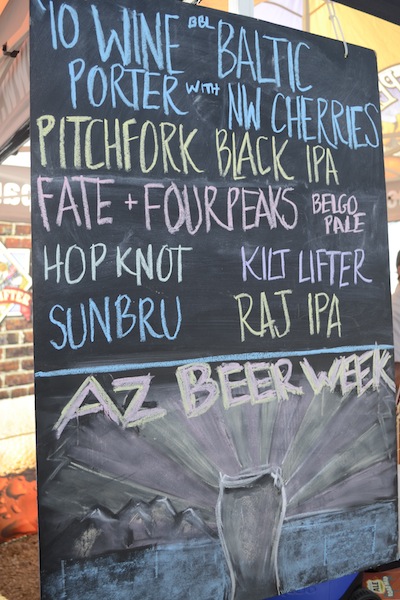 '10 WINE BBL BALTIC
PORTER WITH NW CHERRIES
PITCHFORK BLACK IPA
FATE + FOUR PEAKS BELGO PALE
HOP KNOT KILT LIFTER
SUNBRU RAJ IPA
AZ BEER WEEK